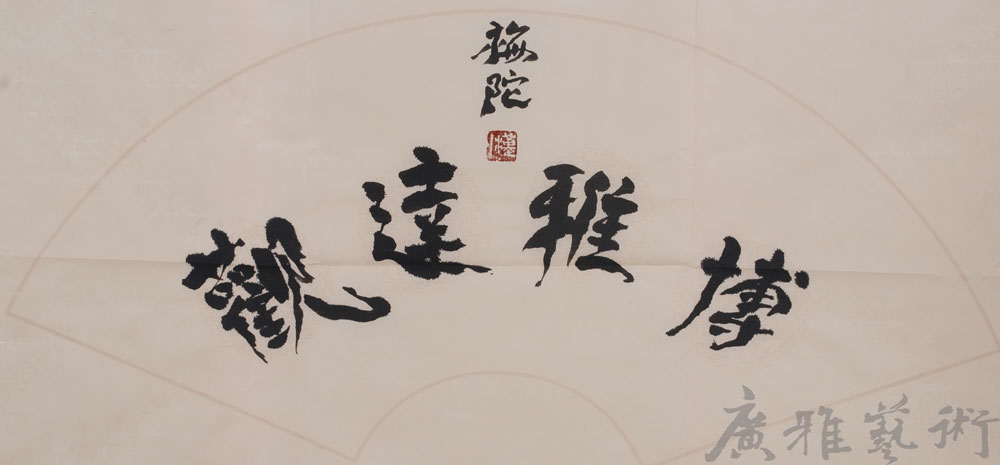 博雅達觀
梅陀
廣雅藝術